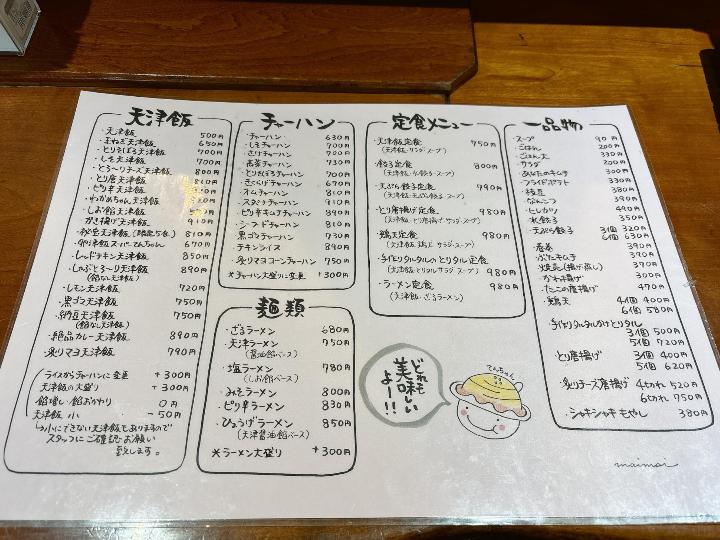 天津飯
・天津飯 500円
・玉ねぎ天津飯 650円
・とりそぼろ天津飯 700円
・しそ天津飯 700円
・とろ〜りチーズ天津飯 800円
・とり唐天津飯
・ピリ辛天津飯
・わかめちゃん天津飯
・しお餡天津飯
・かき揚げ天津飯 910円
810円
670円
850円
890円
(餡なし天津飯)
・レモン天津飯 720円
・黒ゴマ天津飯 750円
・納豆天津飯 750円
(餡なし天津飯)
・絶品カレー天津飯 890円
・炙りマヨ天津飯 790円
ライスからチャーハンに変更 +300円
天津飯の大盛り +300円
餡増し・餡おかわり 0円
天津飯 小 -50円
↳小にできない天津飯もありますので
スタッフにご確認お願い
致します。
チャーハン
・チャーハン 630円
・しそチャーハン 700円
・チャーハン 700円
・高菜チャーハン 730円
・とりそぼろチャーハン 790円
・きくらげチャーハン 840円
・オムチャーハン 810円
・スタミナチャーハン 910円
・ピリ辛キムチャーハン 890円
・シーフードチャーハン 910円
・黒ゴマチャーハン 730円
・チキンライス 890円
・炙りマヨコーンチャーハン 750円
*チャーハン大盛りに変更 +300円
麺類
・ざるラーメン 680円
・天津ラーメン 750円
(醤油餡ベース)
・塩ラーメン 780円
(しお餡ベース)
・みそラーメン 800円
・ピリ辛ラーメン 830円
・ひょうげラーメン 850円
(天津醤油餡ベース)
*ラーメン大盛り +300円
定食メニュー
・天津飯定食 750円
(天津飯・サラダ・スープ)
・餃子定食 800円
(天津飯・水餃子・スープ)
・天ぷら餃子定食 790円
(天津飯・天ぷら餃子・スープ)
・とり唐揚げ定食 980円
(天津飯・とり唐揚げ・サラダ・スープ)
・鶏天定食 980円
(天津飯・鶏天・サラダ・スープ)
・手作りタルタルのとりタル定食 980円
(天津飯・とりタル・サラダ・スープ)
・ラーメン定食 980円
(天津飯・ざるラーメン)
どれも
美味しい
よー!!
てんちゃん
一品物
・スープ 90円
・ごはん 200円
・ごはん大 330円
・サラダ 200円
・あなたのキムチ 300円
・フライドポテト 380円
・枝豆 300円
・なんこつ 390円
・ヒレカツ 490円
・水餃子 350円
・天ぷら餃子 3個 320円
6個 630円
・春巻 390円
・ぶたキムチ 390円
370円
・かわ揚げ 300円
・たこの唐揚げ 470円
・鶏天 4個 400円
6個 580円
・手作りタルタルかけとりタル
3個 500円
5個 720円
・とり唐揚げ 3個 400円
5個 620円
・炙りチーズ唐揚げ 4切れ 520円
6切れ 750円
・シャキシャキもやし 380円
maimai